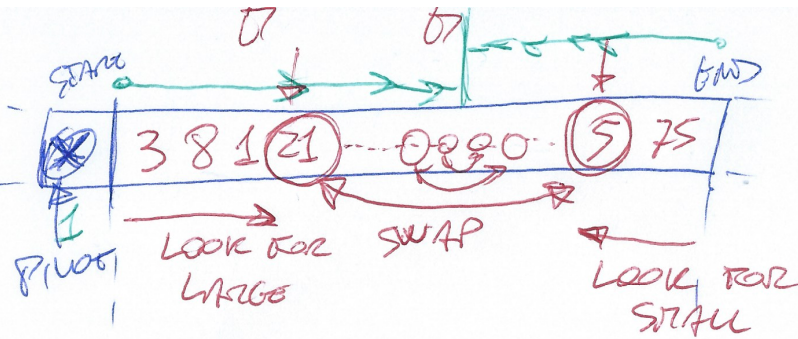 START
END
3 8 1 21 5 75
1
PIVOT
LOOK FOR
LARGE
SWAP
LOOK FOR
SMALL